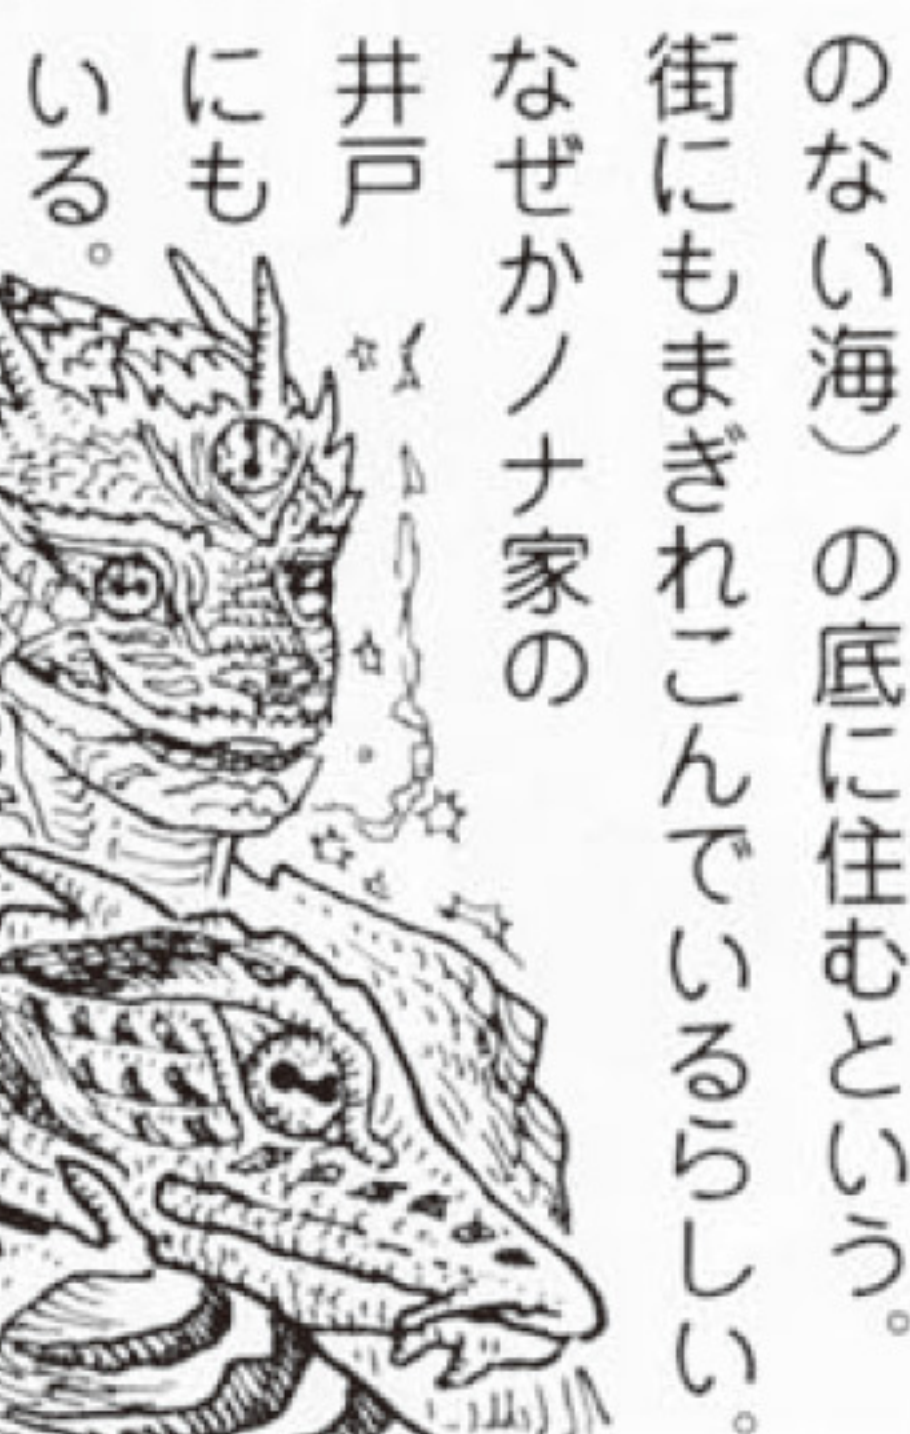 のない海）の底に住むという。
街にもまぎれこんでいるらしい。
なぜかノナ家の
井戸
にも
いる。